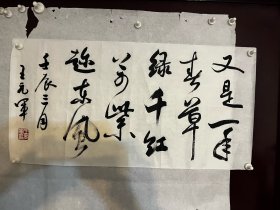 又是一年
春草
绿千红
萬紫
趁东风
壬辰三月
王元軍